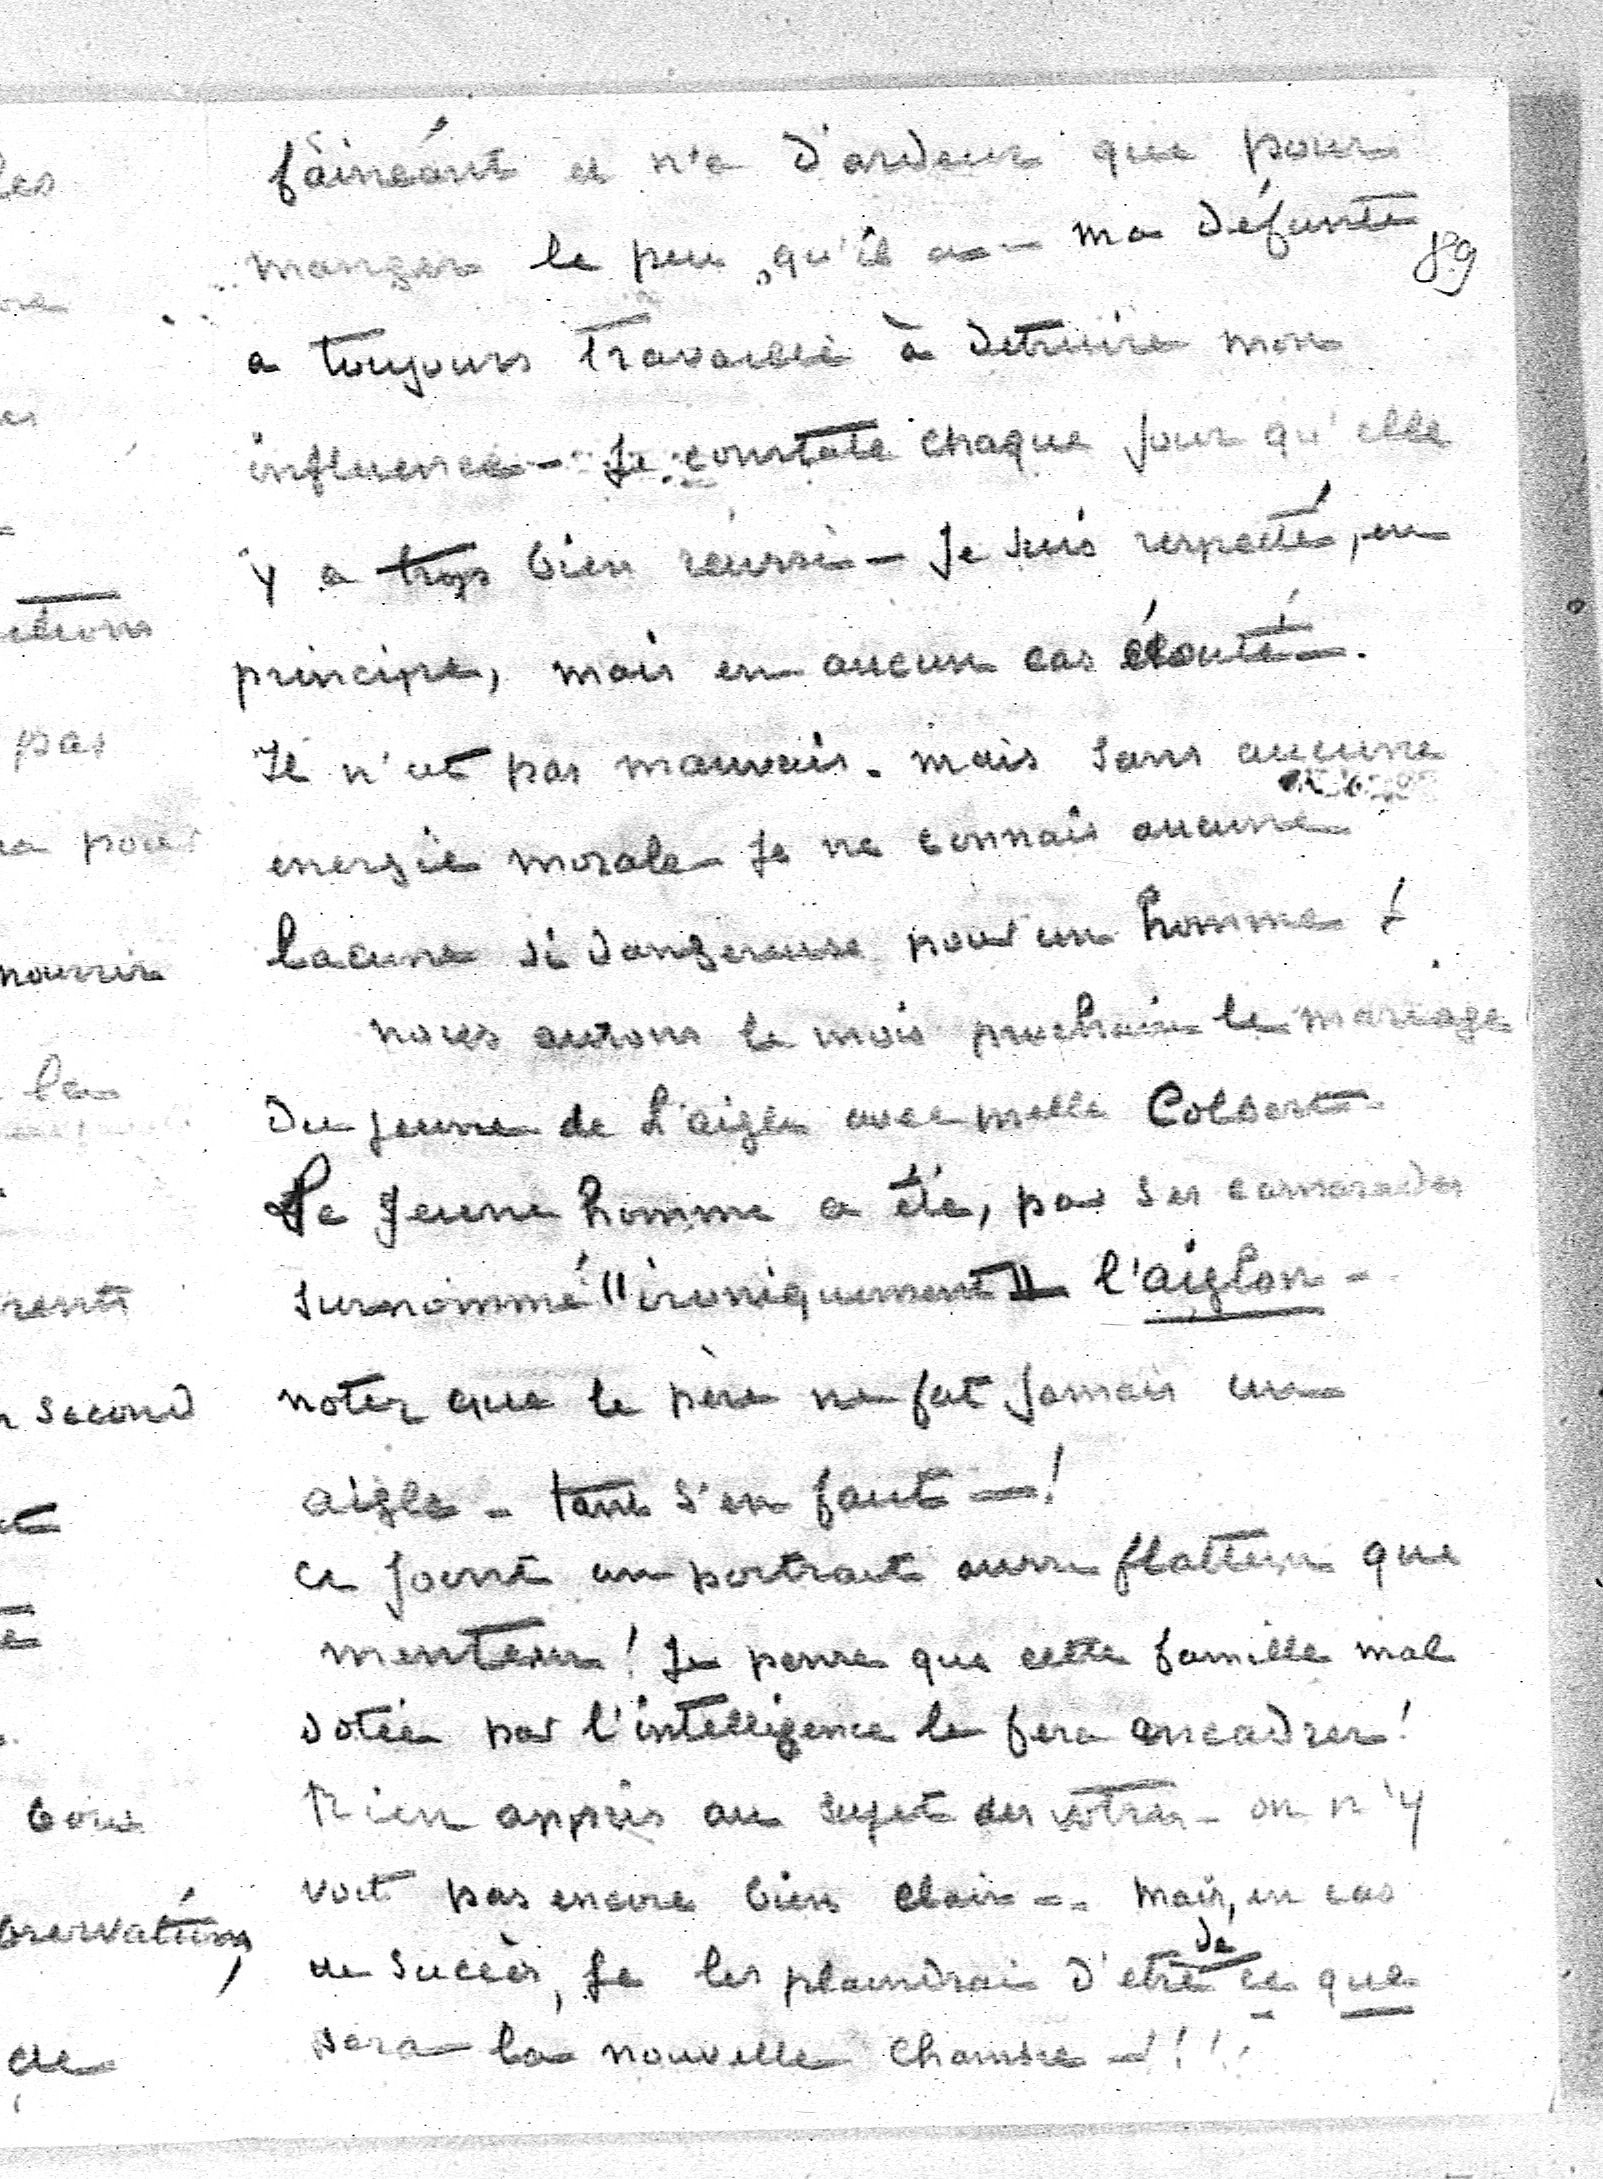 fainéant et n'a d'ardeur que pour
manger le peu qu'il a - ma défunte
89
a toujours travaillé à detruire mon
influence - Je constate chaque jour qu'elle
y a trop bien réussi - Je suis respecté, en
principe, mais en aucun cas écouté -.
Il n'est pas mauvais. mais sans aucune
energie morale - Je ne connais aucune
lacune si dangereuse pour un homme !
nous aurons le mois prochain le mariage
du jeune de L'aigle avec melle Colbert -
Le jeune homme a été, par ses camarades
surnommé "ironiquement" l'aiglon -
notez que le père ne fut jamais un
aigle - tant s'en faut - !
ci joint un portrait aussi flatteur que
menteur ! Je pense que cette famille mal
dotée par l'intelligence le fera encadrer !
Rien appris au sujet des votres - on n'y
voit pas encore bien clair -. mais, en cas
de succès, Je les plaindrai d'etre de ce que
sera la nouvelle chambre - !!!
les
pas
pour
nourrir
la
second
de